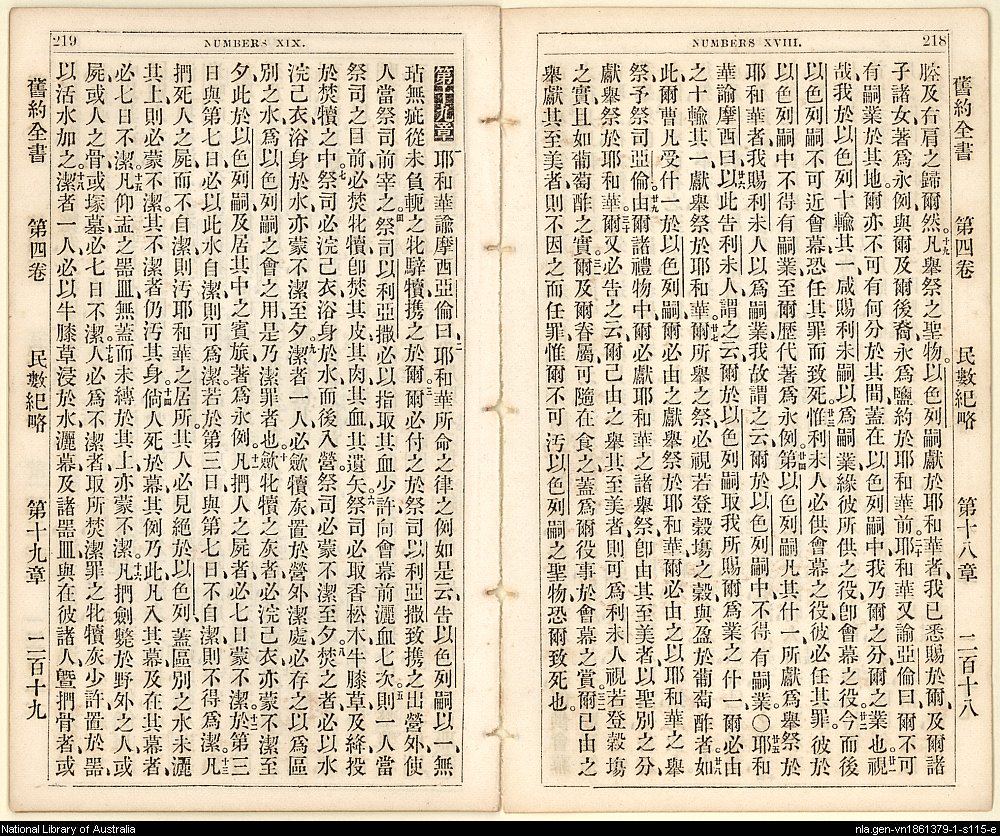 218
NUMBERS XVIII.
舊約全書 第四卷 民數紀略 第十八章 二百十八
及右肩之歸爾然。十九凡舉祭之聖物、以色列嗣獻於耶和華者、我已悉賜於爾、及爾諸
子諸女、著爲永例、與爾及爾後裔、永爲鹽約於耶和華前。二十耶和華又諭亞倫曰、爾不可
有嗣業於其地、爾亦不可有何分於其間、蓋在以色列嗣中、我乃爾之分、爾之業也。廿一視
哉、我於以色列十輸其一、咸賜利未嗣以爲嗣業、緣彼所供之役、卽會幕之役。廿二今而後
以色列嗣不可近會幕、恐任其罪而致死。廿三惟利未人必供會幕之役、彼必任其罪、彼於
以色列嗣中不得有嗣業、至爾歷代著爲永例。廿四第以色列嗣、凡其什一所獻爲舉祭於
耶和華者、我賜利未人以爲嗣業、我故謂之云、爾於以色列嗣中不得有嗣業。〇廿五耶和
華諭摩西曰、廿六以此告利未人、謂之云、爾於以色列嗣取我所賜爾爲業之什一、爾必由
之十輸其一、獻舉祭於耶和華。廿七爾所舉之祭、必視若登穀塲之穀、與盈於葡萄醡者。廿八如
此、爾曹凡受什一於以色列嗣、爾必由之獻舉祭於耶和華、爾必由之以耶和華之舉
祭、予祭司亞倫。廿九由爾諸禮物中、爾必獻耶和華之諸舉祭、卽由其至美者以聖別之分
獻舉祭於耶和華。三十爾又必告之云、爾已由之舉其至美者、則可爲利未人視若登穀塲
之實、且如葡萄醡之實。三一爾及爾眷屬可隨在食之、蓋爲爾役事於會幕之賞。三二爾已由之
舉獻其至美者、則不因之而任罪、惟爾不可汚以色列嗣之聖物、恐爾致死也。
219
NUMBERS XIX.
第十九章 一耶和華諭摩西亞倫曰、二耶和華所命之律之例如是云、告以色列嗣、以一無
玷無疵、從未負軛之牝騂犢、携之於爾。三爾必付之於祭司以利亞撒、致携之出營外、使
人當祭司前宰之。四祭司以利亞撒必以指取其血少許、向會幕前灑血七次。五則一人當
祭司之目前、必焚牝犢、卽焚其皮、其肉、其血、其遺矢。六祭司必取香松木、牛膝草、及絳、投
於焚犢之中。七祭司必浣己衣、浴身於水、而後入營、祭司必蒙不潔至夕。八焚之者必以水
浣己衣、浴身於水、亦蒙不潔至夕。九潔者一人必斂犢灰、置於營外潔處、必存之以爲區
別之水、爲以色列嗣之會之用、是乃潔罪者也。十斂牝犢之灰者、必浣己衣、亦蒙不潔至
夕、此於以色列嗣、及居其中之賓旅、著爲永例。十一凡捫人之屍者、必七日蒙不潔。十二於第三
日與第七日、必以此水自潔、則可爲潔、若於第三日與第七日不自潔、則不得爲潔。十三凡
捫死人之屍而不自潔、則汚耶和華之居所、其人必見絕於以色列、蓋區別之水未灑
其上、則必蒙不潔、其不潔者仍汚其身。十四倘人死於幕、其例乃此、凡入其幕及在其幕者、
必七日不潔。十五凡仰盂之器皿、無蓋而未縛於其上、亦蒙不潔。十六凡捫劍斃於野外之人、或
屍、或人之骨、或塚墓、必七日不潔。十七人必爲不潔者取所焚潔罪之牝犢灰少許置於器、
以活水加之。十八潔者一人必以牛膝草浸於水、灑幕及諸器皿、與在彼諸人、曁捫骨者、或
舊約全書 第四卷 民數紀略 第十九章 二百十九
National Library of Australia
nla.gen-vn1861379-1-s115-e